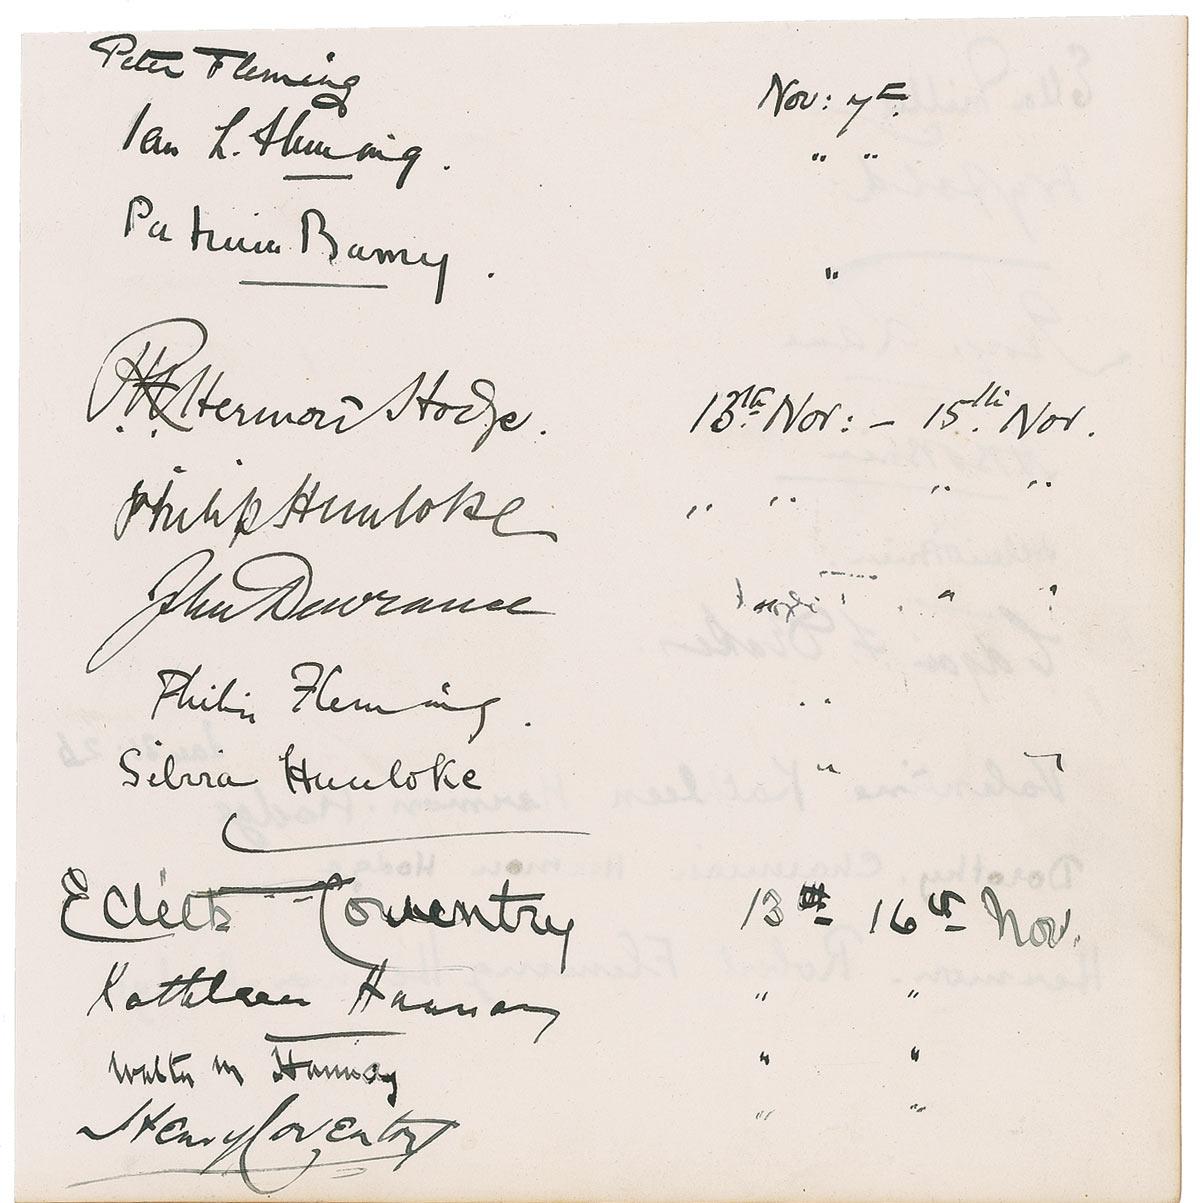 Peter Fleming Nov: 7th
Ian L. Fleming. " "
Patricia Barney. "
Hermon Hodge. 13th Nov: - 15th Nov.
Philip Hunloke " " " "
John Dewrance " "
Philip Fleming. "
Silvia Hunloke "
Edith Coventry 13th 16th Nov.
Kathleen Hannay " "
Walter M Hannay " "
Henry Coventry " "